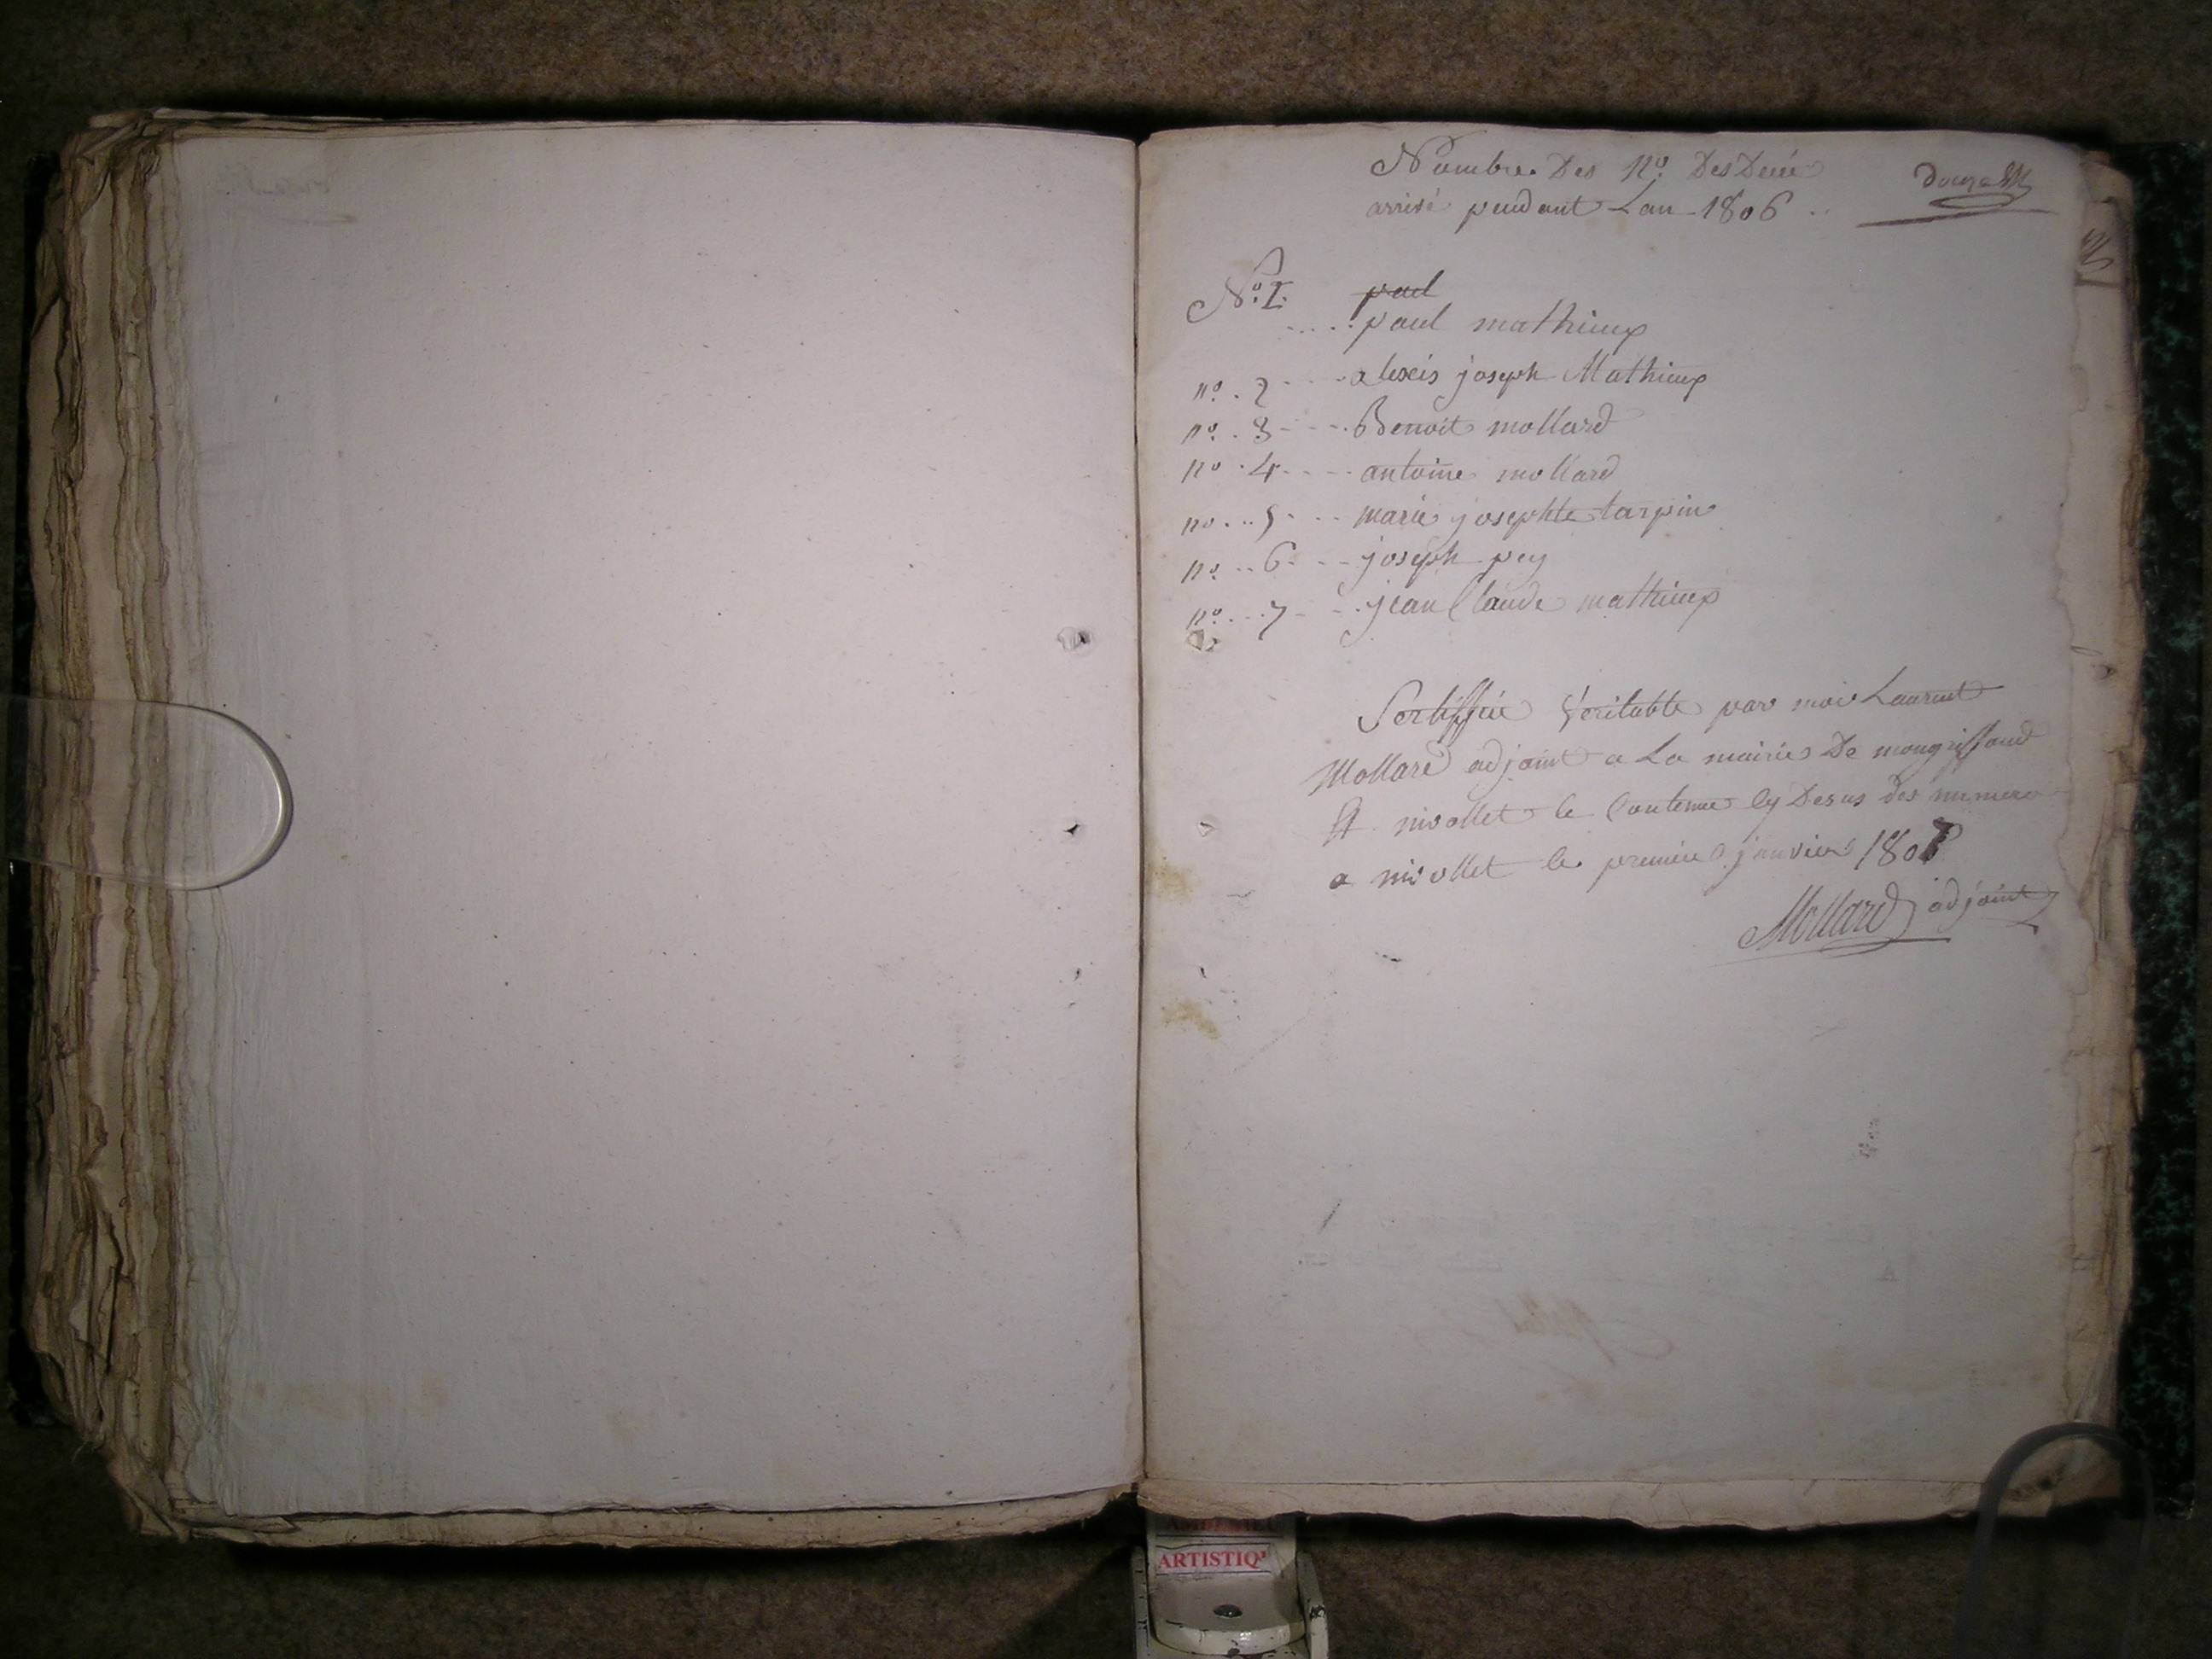 Nombre Des No. Des Décé
douze
arrivé pendant Lan 1806
No. I. paul
..... paul mathieux
no. 2 .... alexis joseph Mathieux
no. 3 .... Benoit mollard
no. 4 .... antoine mollard
no. 5 .... marie josephte tarpin
no. 6 ... joseph pey
no. 7 ... jean Claude mathieux
Sertiffiée Veritable par moi Laurent
Mollard adjoint a La mairie De mongriffond
Et nivollet le Contenue Cy Desus des numero
a nivollet le premier janvier 1807
Mollard adjoint
ARTISTIQ